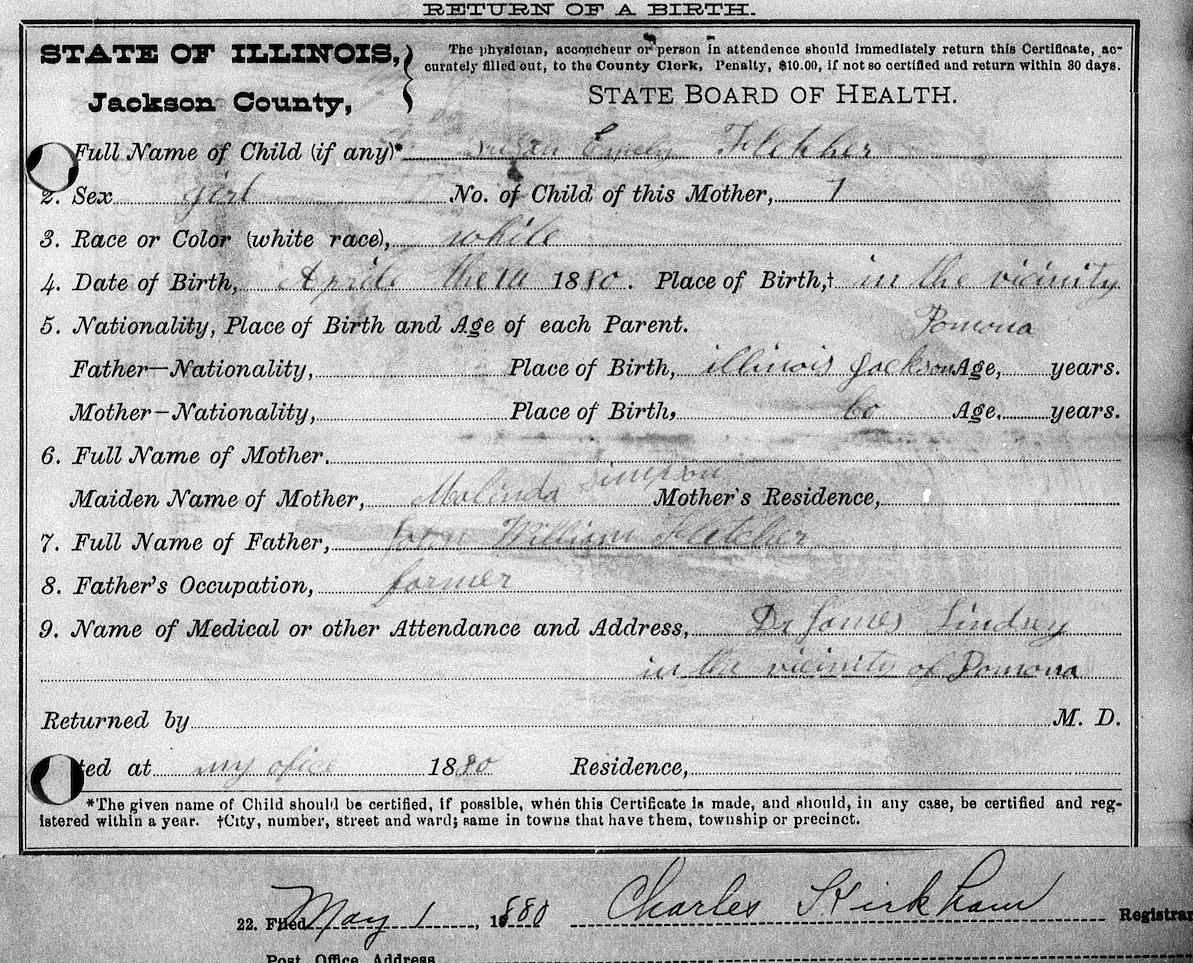 RETURN OF A BIRTH.
STATE OF ILLINOIS,
Jackson County,
The physician, accoucheur or person in attendence should immediately return this Certificate, ac-
curately filled out, to the County Clerk, Penalty, $10.00, if not so certified and return within 30 days.
STATE BOARD OF HEALTH.
Full Name of Child (if any)* Susan Emely Fletcher
2. Sex girl No. of Child of this Mother, 1
3. Race or Color (white race), white
4. Date of Birth, Aprile the 1880. Place of Birth,† in the vicinity
5. Nationality, Place of Birth and Age of each Parent. Pomona
Father—Nationality, Place of Birth, illinois jackson Age, years.
Mother—Nationality, Place of Birth, Age, years.
6. Full Name of Mother.
Maiden Name of Mother, Malinda Simpson Mother's Residence,
7. Full Name of Father, John William Fletcher
8. Father's Occupation, farmer
9. Name of Medical or other Attendance and Address, Dr James Lindsey
in the vicinity of Pomona
Returned by M. D.
ted at my ofice 1880 Residence,
*The given name of Child should be certified, if possible, when this Certificate is made, and should, in any case, be certified and reg-
istered within a year. †City, number, street and ward; same in towns that have them, township or precinct.
22. Filed May 1, 1880 Charles Kirkham Registrar
Post Office Address